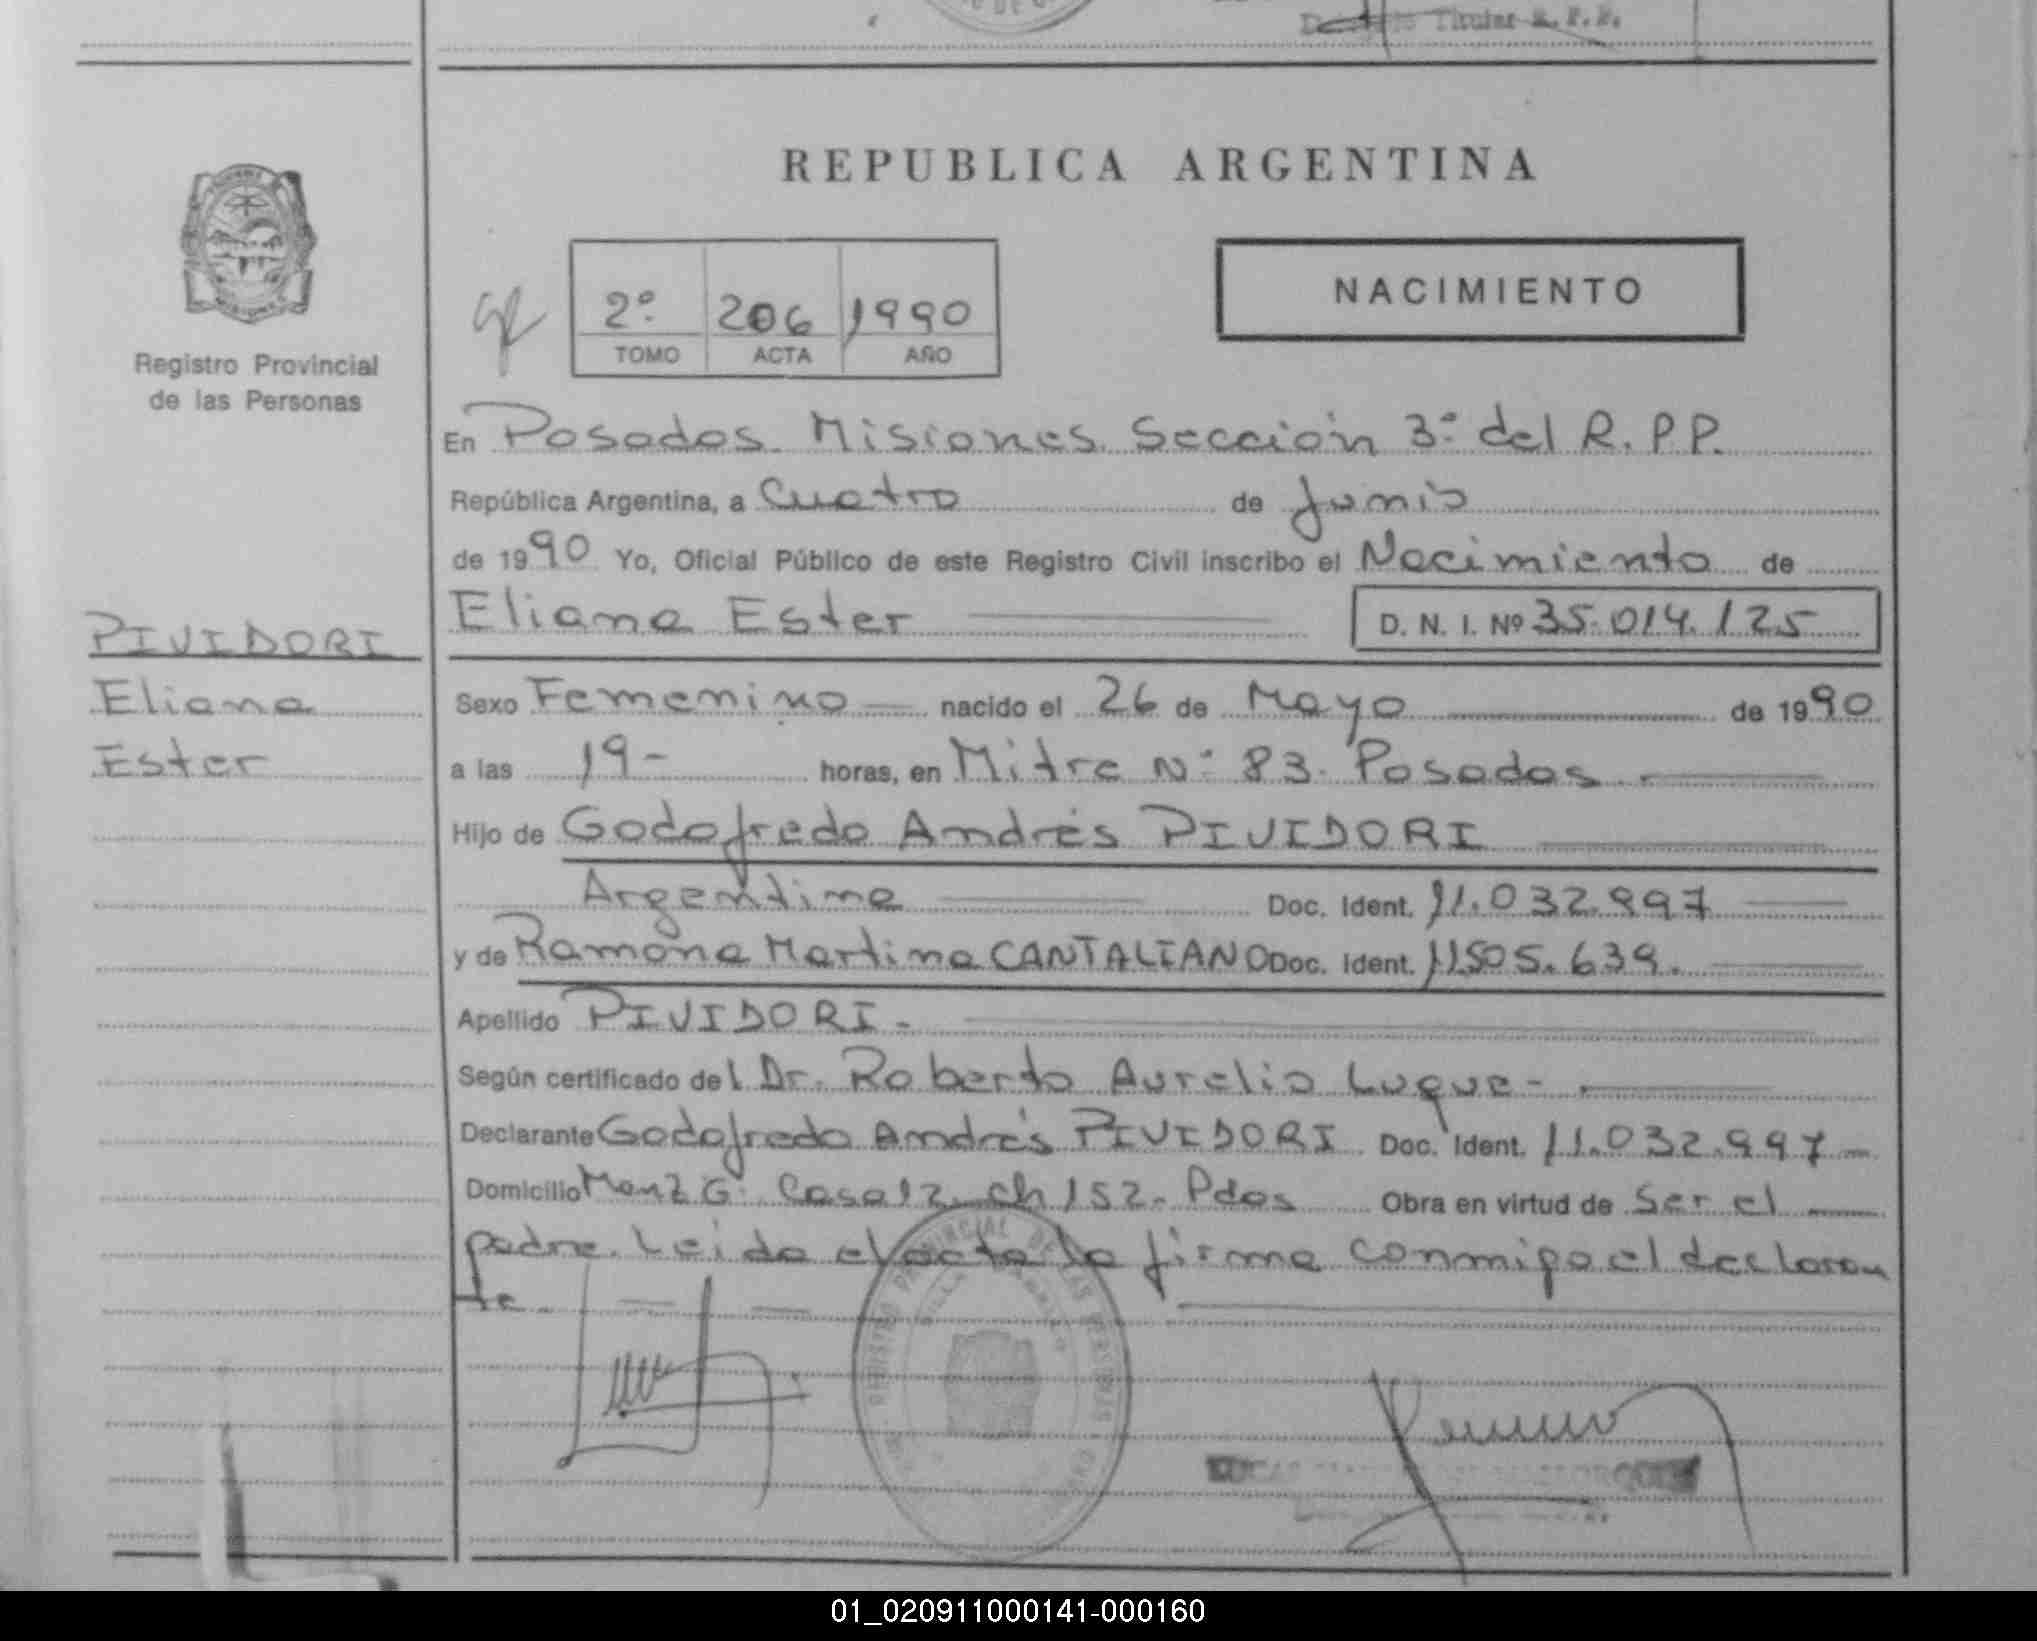 Titular R. P. P.
REPUBLICA ARGENTINA
2º 206 1990
TOMO ACTA AÑO
NACIMIENTO
Registro Provincial
de las Personas
En Posadas Misiones Sección 3ª del R.P.P.
República Argentina, a Cuatro de Junio
de 1990 Yo, Oficial Público de este Registro Civil inscribo el Nacimiento de
Eliana Ester D. N. I. Nº 35.014.125
PIVIDORI
Eliana
Ester
Sexo Femenino nacido el 26 de Mayo de 1990
a las 19- horas, en Mitre Nº 83. Posadas.
Hijo de Godofredo Andrés PIVIDORI
Argentina Doc. Ident. 11.032.997
y de Ramona Martina CANTALIANO Doc. Ident. 11.505.639.
Apellido PIVIDORI.-
Según certificado del Dr. Roberto Aurelio Luque-.
Declarante Godofredo Andrés PIVIDORI Doc. Ident. 11.032.997-
Domicilio Manz G. Casa 12. ch 152. Pdas Obra en virtud de Ser el
padre. Leida el acta la firma conmigo el declaran
te.
REGISTRO PROVINCIAL DE LAS PERSONAS
01_020911000141-000160